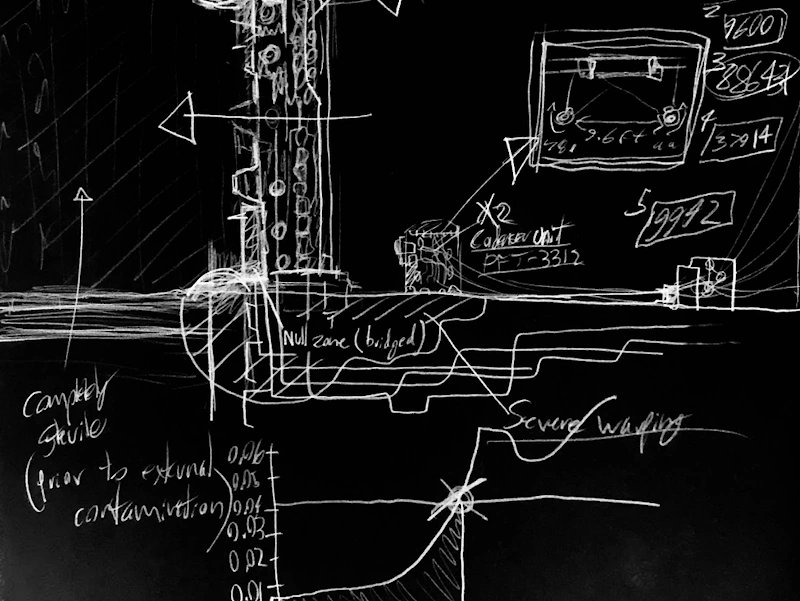 2
9600
3
4
5
9942
9.6ft
X2
unit
PFT-3312
Null zone (bridged)
Severe warping
Completely
sterile
(prior to external
contamination)
0.06
0.05
0.04
0.03
0.02
0.01